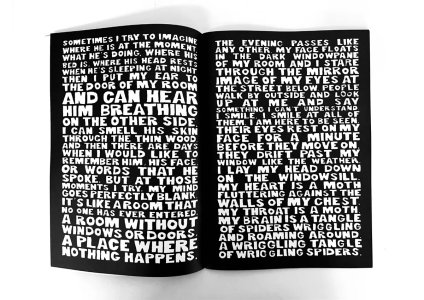 SOMETIMES I TRY TO IMAGINE
WHERE HE IS AT THE MOMENT.
WHAT HE'S DOING. WHERE HIS
BED IS. WHERE HIS HEAD RESTS
WHEN HE'S SLEEPING AT NIGHT.
THEN I PUT MY EAR TO
THE DOOR OF MY ROOM
AND CAN HEAR
HIM BREATHING
ON THE OTHER SIDE.
I CAN SMELL HIS SKIN
THROUGH THE THIN WOOD.
AND THEN THERE ARE DAYS
WHEN I WOULD LIKE TO
REMEMBER HIM HIS FACE
OR WORDS THAT HE
SPOKE. BUT AT THOSE
MOMENTS I TRY, MY MIND
GOES PERFECTLY BLANK.
IT'S LIKE A ROOM THAT
NO ONE HAS EVER ENTERED.
A ROOM WITHOUT
WINDOWS OR DOORS.
A PLACE WHERE
NOTHING HAPPENS.
THE EVENING PASSES LIKE
ANY OTHER. MY FACE FLOATS
IN THE DARK WINDOWPANE
OF MY ROOM AND I STARE
THROUGH THE MIRROR
IMAGE OF MY EYES AT
THE STREET BELOW. PEOPLE
WALK BY OUTSIDE AND LOOK
UP AT ME AND SAY
SOMETHING I CAN'T UNDERSTAND.
I SMILE. I SMILE AT ALL OF
THEM. I AM HERE TO BE SEEN.
THEIR EYES REST ON MY
FACE FOR A MINUTE
BEFORE THEY MOVE ON.
THEY DRIFT PAST MY
WINDOW LIKE THE WEATHER.
I LAY MY HEAD DOWN
ON THE WINDOWSILL.
MY HEART IS A MOTH
FLUTTERING AGAINST THE
WALLS OF MY CHEST.
MY THROAT IS A MOTH.
MY BRAIN IS A TANGLE
OF SPIDERS WRIGGLING
AND ROAMING AROUND.
A WRIGGLING TANGLE
OF WRIGGLING SPIDERS.